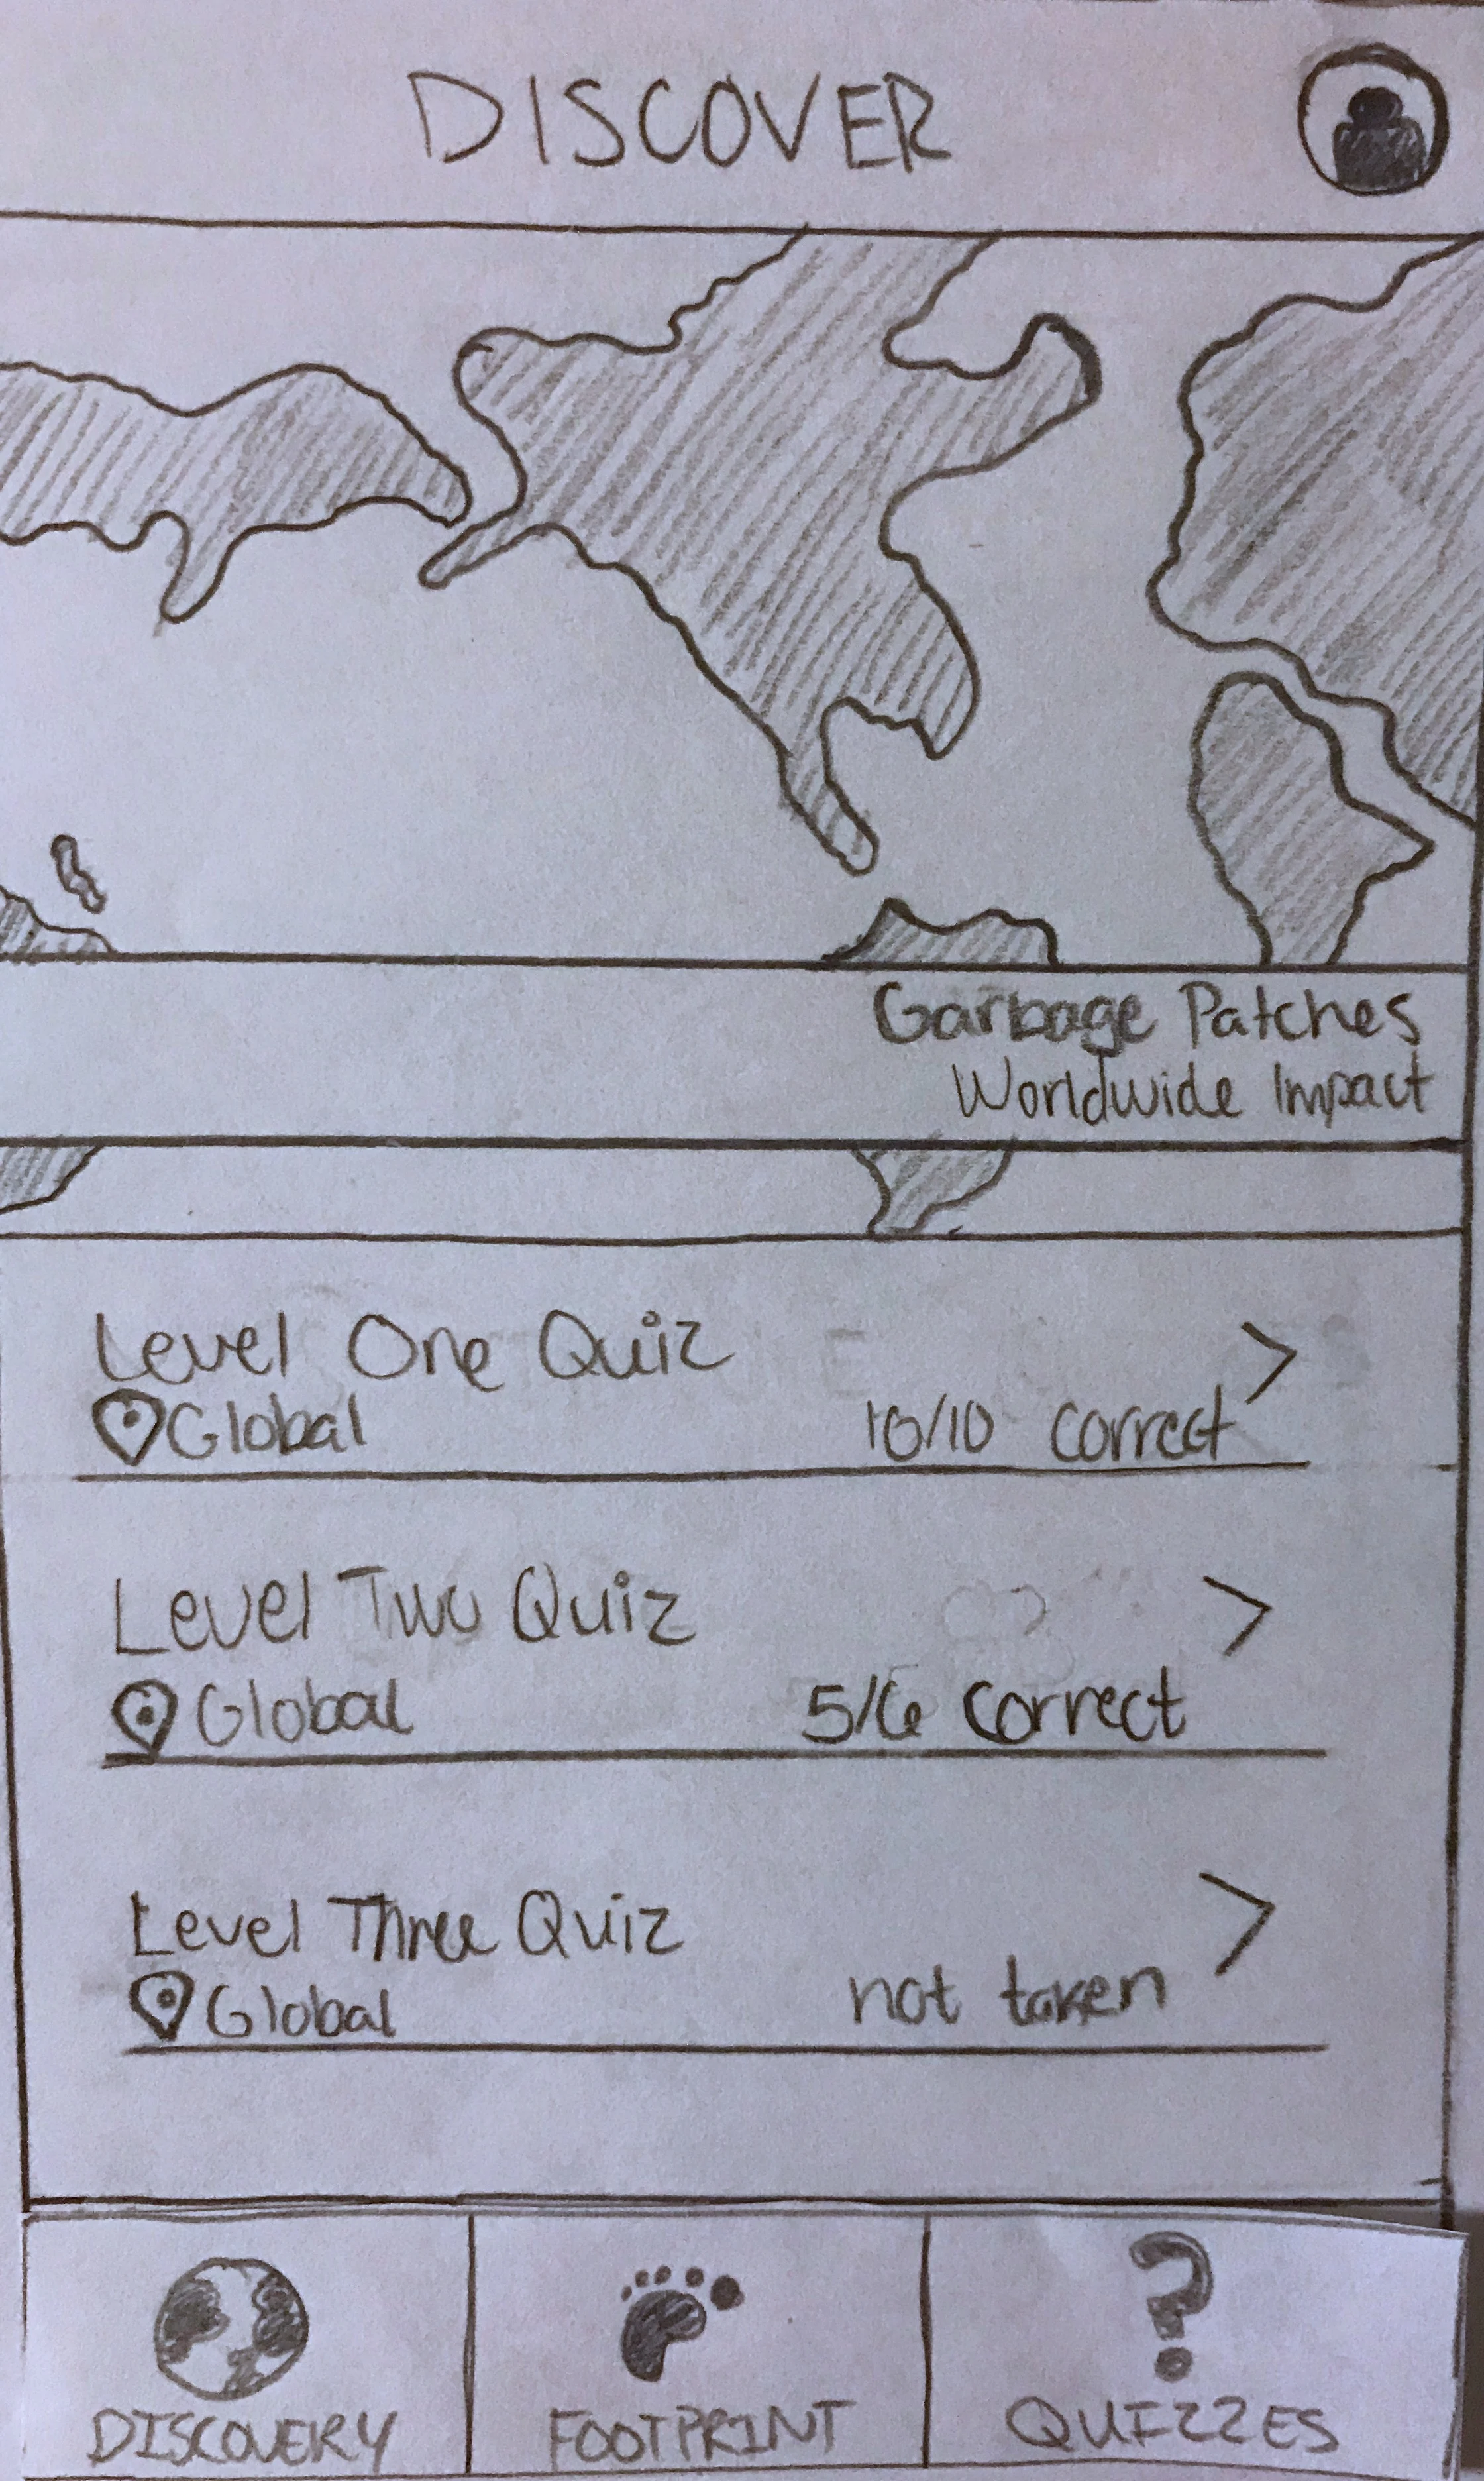 DISCOVER
Garbage Patches
Worldwide Impact
Level One Quiz
>
Global
10/10 correct
Level Two Quiz
>
Global
5/6 correct
Level Three Quiz
>
Global
not taken
?
DISCOVERY
FOOTPRINT
QUIZZES